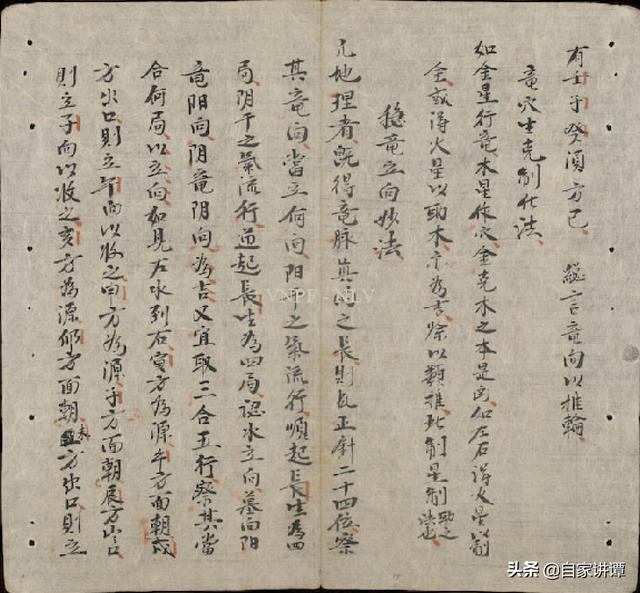 有壬子癸須方巳　總言竜向以推輪
竜穴生克制化法
如金星行竜木星作穴金克木之本是凶如左右得火星以制
金或得水星以助木亦為吉餘以類推此制星制助之法也
穩竜立向妙法
凡地理者既得竜脉真之長則瓦正針二十四位察
其竜向當立何向阳之氣流行順起長生為四
局阴干之氣流行逆起長生為四局認水立向墓向阳
竜阳向阴竜阴向為吉又宜取三合五行察其當
合何局以立向如見左水到右寅方為源午方面朝戍
方出口則立午向以收之申方為源子方面朝辰方出口
則立子向以收之亥方為源卯方面朝未方出口則立
VNPF-NLV
头条 @自家讲谭